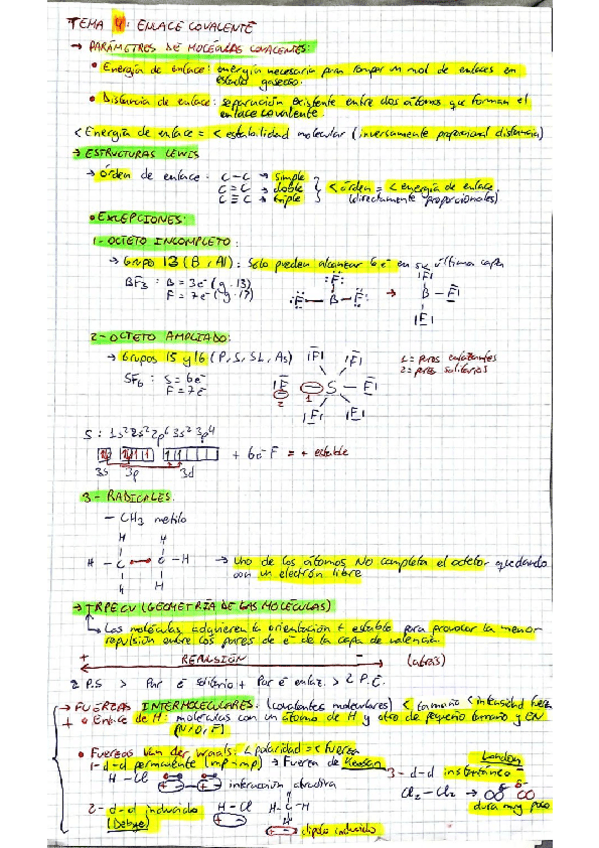 TEMA 4: ENLACE COVALENTE
→ PARÁMETROS DE MOLÉCULAS COVALENTES:
• Energía de enlace: energía necesaria para romper un mol de enlaces en
estado gaseoso.
• Distancia de enlace: separación existente entre dos átomos que forman el
enlace covalente.
< Energía de enlace = < estabilidad molecular (inversamente proporcional distancia)
→ ESTRUCTURAS LEWIS
→ órden de enlace: C-C → simple
C=C → doble
C≡C → triple
< órden = < energía de enlace
(directamente proporcionales)
• EXCEPCIONES:
1- OCTETO INCOMPLETO:
→ Grupo 13 (B, Al): Solo pueden alcanzar 6 e⁻ en su última capa
BF₃: B = 3e⁻ (g. 13)
F = 7e⁻ (g. 17)
F B F → F B F
F
2- OCTETO AMPLIADO:
→ Grupos 15 y 16 (P, S, SL, As)
1 = pares enlazantes
2 = pares solitarios
SF₆: S = 6e⁻
F = 7e⁻
S: 1s² 2s² 2p⁶ 3s² 3p⁴
+ 6e⁻ F = + estable
3s 3p 3d
3- RADICALES.
- CH₃ metilo
H H
H - C C - H
H H
→ Uno de los átomos NO completa el octeto, quedando
con un electrón libre
→ TRPECV (GEOMETRÍA DE LAS MOLÉCULAS)
↳ Las moléculas adquieren la orientación + estable para provocar la menor
repulsión entre los pares de e⁻ de la capa de valencia.
+ REPULSIÓN -
2 P.S > Par e⁻ solitario + Par e⁻ enlaz. > 2 P.E.
→ FUERZAS INTERMOLECULARES. (covalentes moleculares) < tamaño < intensidad fuerza
+ • Enlace de H: moléculas con un átomo de H y otro de pequeño tamaño y EN
(N, O, F)
• Fuerzas Van der Waals: < polaridad = < fuerza
1- d-d permanente (mp-mp) → Fuerza de Keesom
H - Cl interacción atractiva
2- d-d inducido
(Debye)
H - Cl
H - C - H
dipolo inducido
London
3- d-d instantáneo
Cl₂ - Cl₂ →
dura muy poco